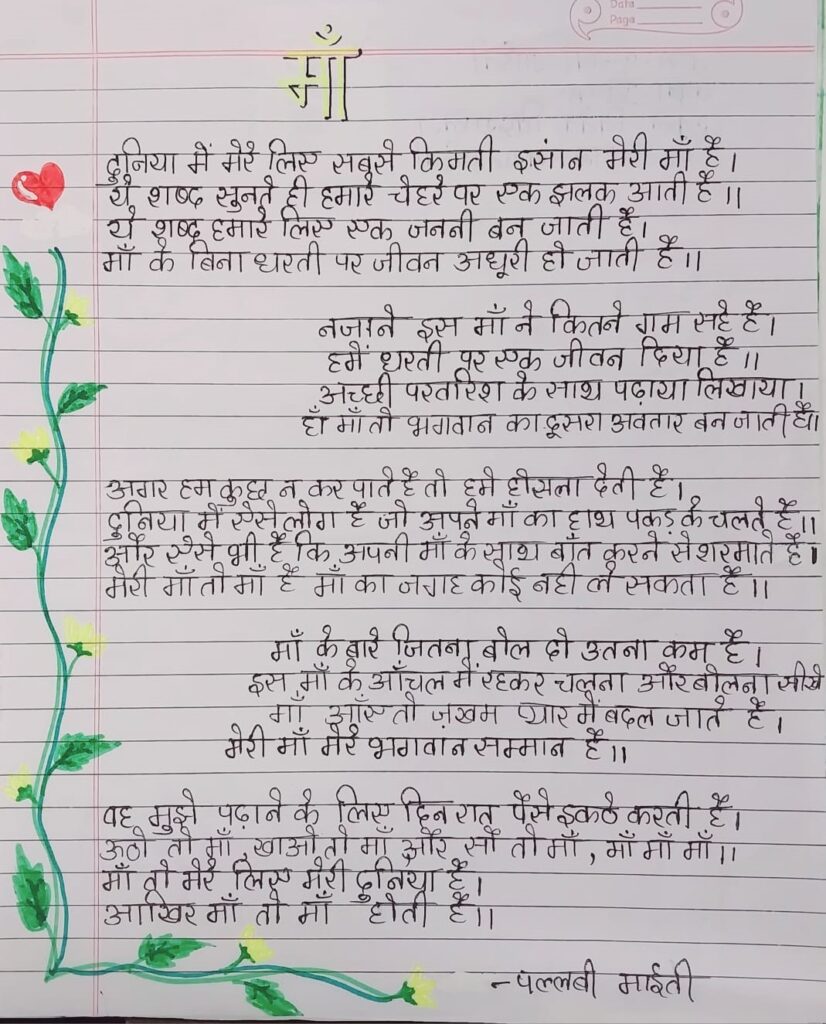 Data
Page
माँ
दुनिया में मेरे लिए सबसे किमती इसांन मेरी माँ है।
ये शब्द सुनते ही हमारे चेहरे पर एक झलक आती है।।
ये शब्द हमारे लिए एक जननी बन जाती है।
माँ के बिना धरती पर जीवन अधूरी हो जाती है।।
नजाने इस माँ ने कितने गम सहे है।
हमें धरती पर एक जीवन दिया है।।
अच्छी परवरिश के साथ पढ़ाया लिखाया।
हाँ माँ तो भगवान का दूसरा अवतार बन जाती है।।
अगर हम कुछ न कर पाते है तो हमे हौसला देती है।
दुनिया में ऐसे लोग है जो अपने माँ का हाथ पकड़ के चलते है।।
और ऐसे भी है कि अपनी माँ के साथ बात करने से शरमाते है।
मेरी माँ तो माँ है माँ का जगह कोई नही ले सकता है।।
माँ के बारे जितना बोल दो उतना कम है।
इस माँ के आँचल में रहकर चलना और बोलना सीखे
माँ आँए तो ज़खम प्यार में बदल जाते है।
मेरी माँ मेरे भगवान सम्मान है।।
वह मुझे पढ़ाने के लिए दिन रात पैसे इकठे करती है।
ऊठो तो माँ, खाओ तो माँ और सो तो माँ, माँ माँ माँ।।
माँ तो मेरे लिए मेरी दुनिया है।
आखिर माँ तो माँ होती है।।
- पल्लबी माईती